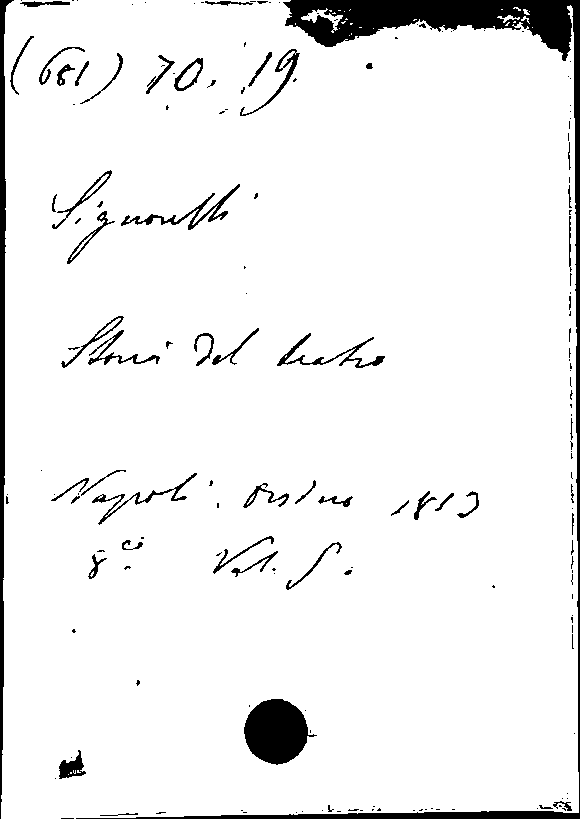 (681) 70. 19.
Signorelli
Storia del teatro
Napoli. Orsino 1813
8º. Vol.